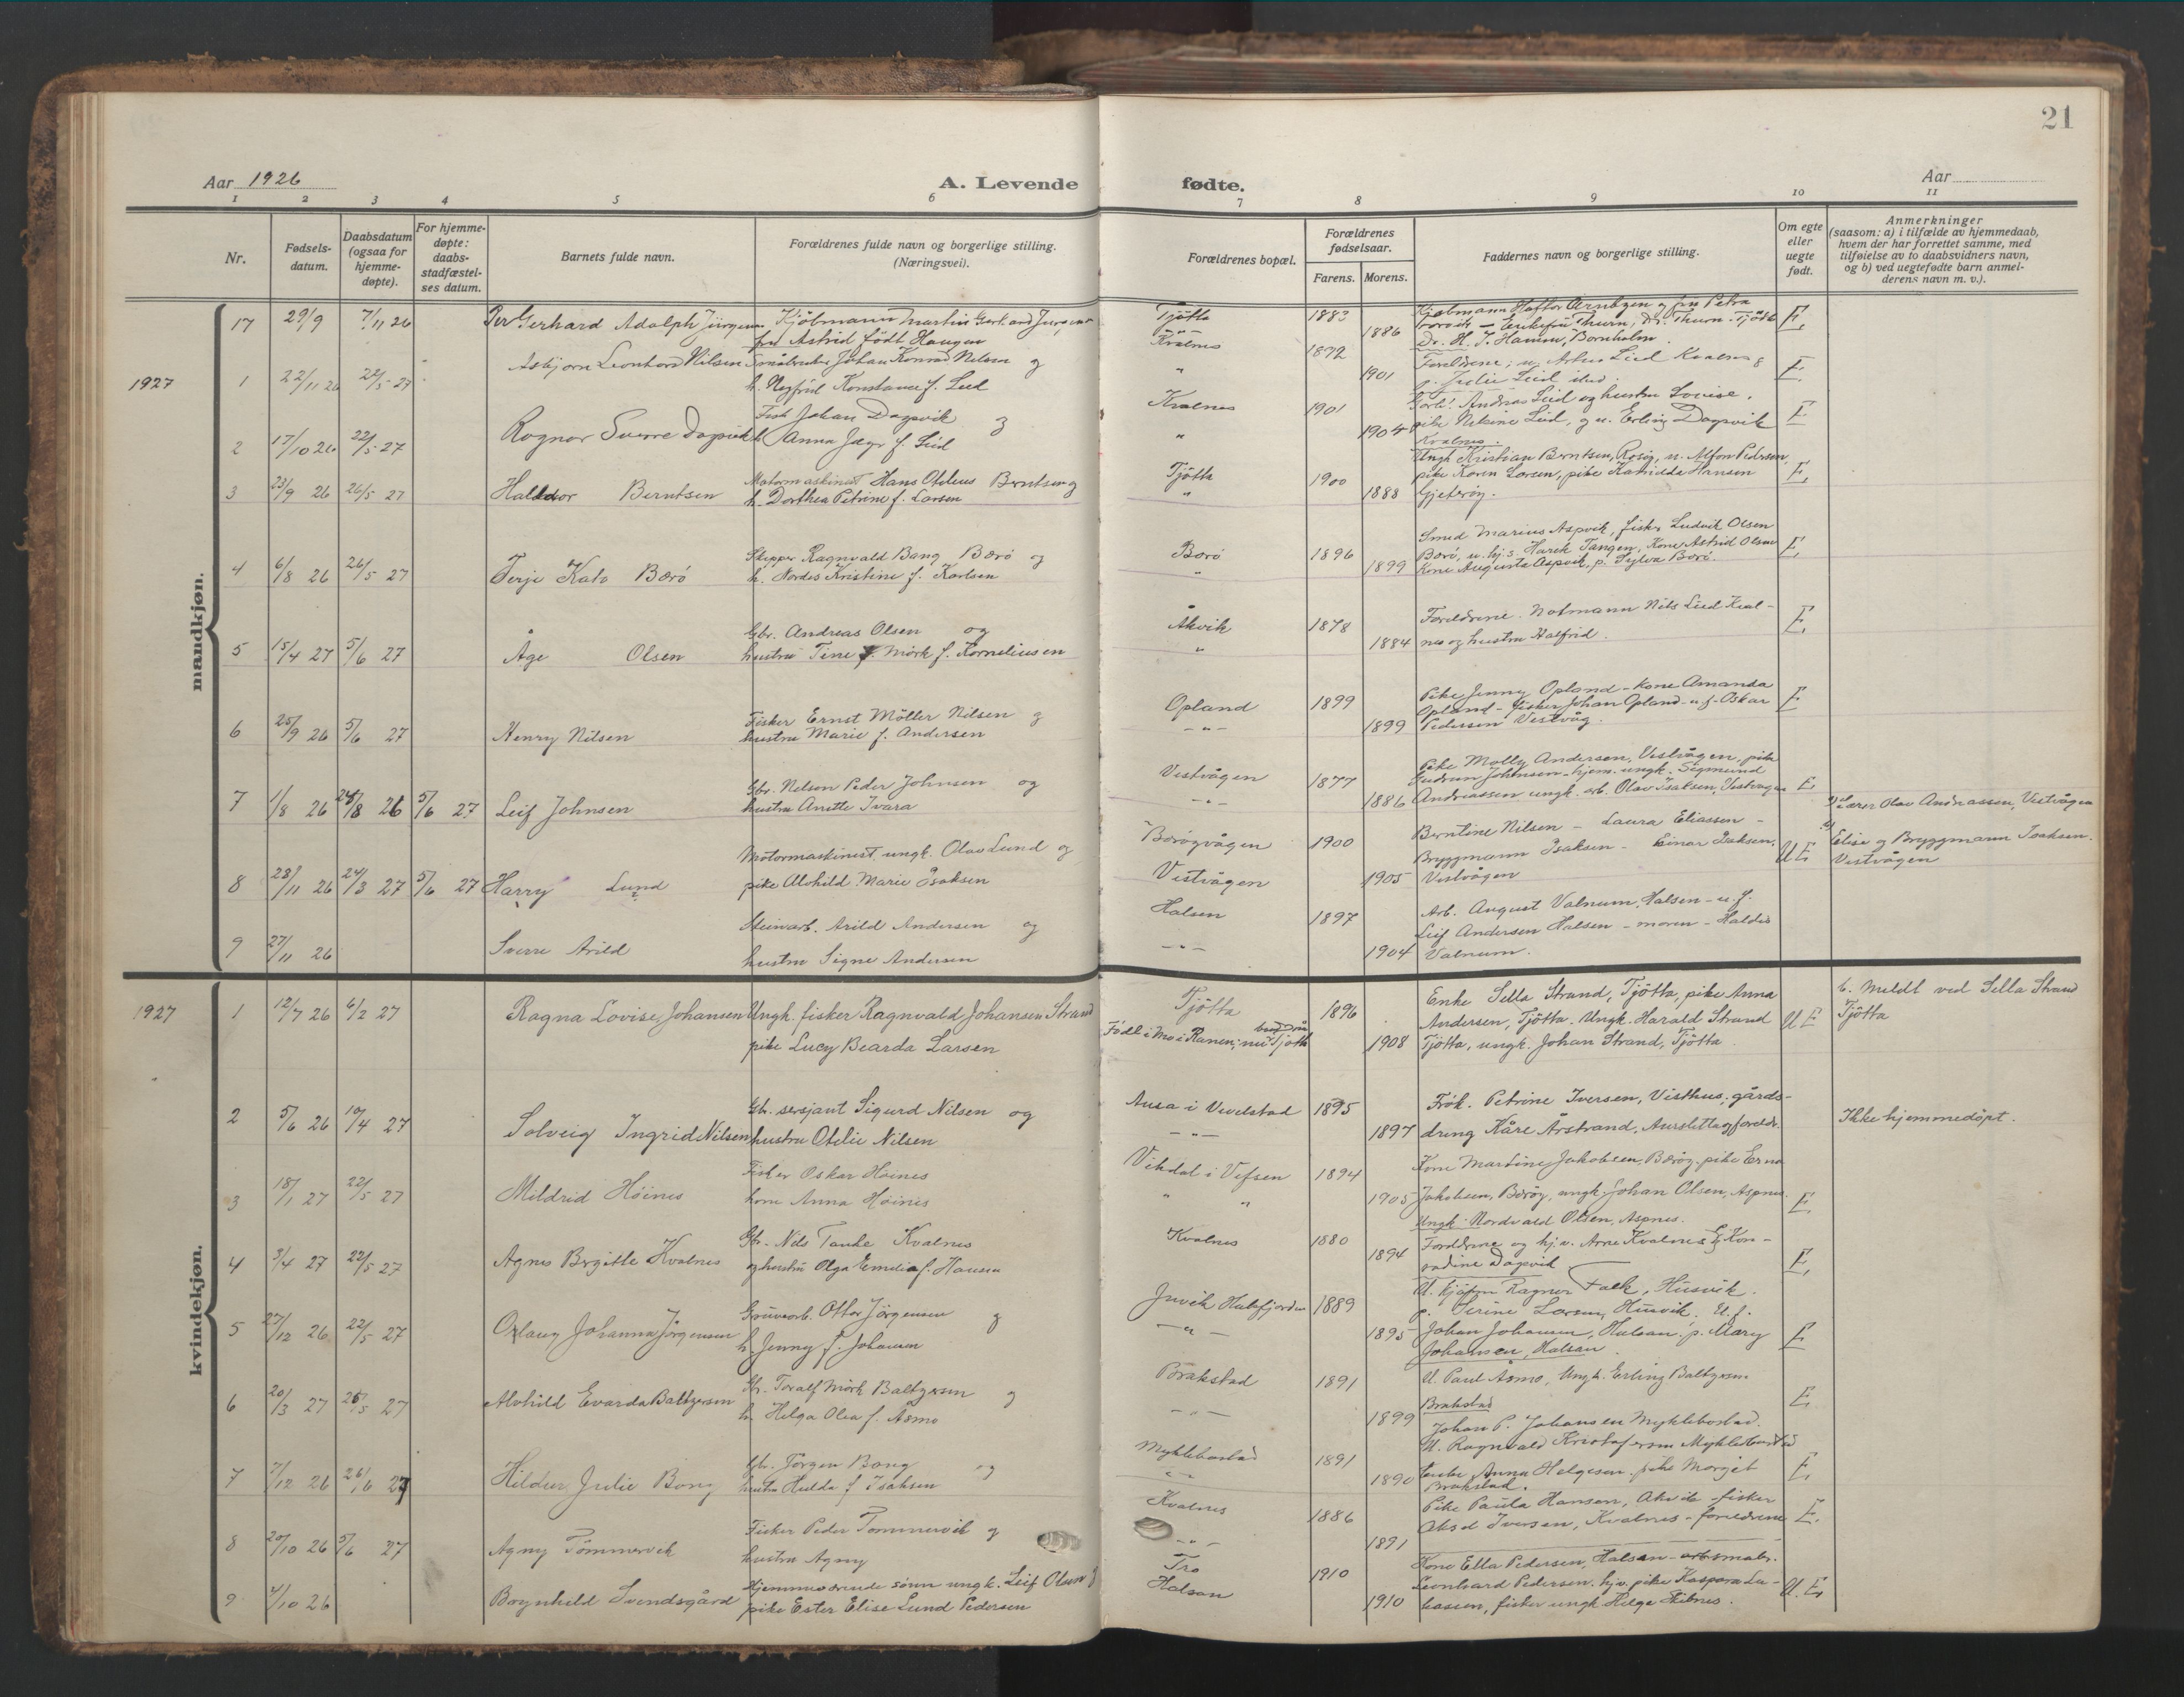 21
Aar 1926
A. Levende fødte.
Aar
1 2 3 4 5 6 7 8 9 10 11
Nr.
Fødsels-
datum.
Daabsdatum
(ogsaa for
hjemme-
døpte).
For hjemme-
døpte:
daabs-
stadfæstel-
ses datum.
Barnets fulde navn.
Forældrenes fulde navn og borgerlige stilling.
(Næringsvei).
Forældrenes bopæl.
Forældrenes
fødselsaar.
Farens. Morens.
Faddernes navn og borgerlige stilling.
Om egte
eller
uegte
født.
Anmerkninger
(saasom: a) i tilfælde av hjemmedaab,
hvem der har forrettet samme, med
tilføielse av to daabsvidners navn,
og b) ved uegtefødte barn anmel-
derens navn m. v.).
mandkjøn.
17 29/9 7/11 26 Per Gerhard Adolph Jürgens Kjöbmann Martin Tjötta 1883
fru Astrid född Haugen 1886 Dr. H. J. Hansen, Bornholm E.
1927
1 22/11 26 22/5 27 Asbjorn Leonhard Nilsen Småbruker Johan Konrad Nilsen og Kvalnes 1872 Foreldrene; u. Lied Kvalnes g
h. Konstanse f. Lied " 1901 p. Julie Lied E.
2 17/10 26 22/5 27 Ragnar Sverre Dagsvik Fisk Johan Dagsvik g Kvalnes 1901 Andreas Lied og hustru Lovise,
h. Anna f. Lied " 1904 pike Lied, g u. Erling Dagsvik
Kvalnes. E
3 23/9 26 26/5 27 Halldor Berntsen Motormaskinist Hans Otelius Berntsen g Tjötta 1900 Ungk Kristian Berntsen, Rosöy, u. Alfon Pedersen,
h. Dorthea Petrine f. Larsen " 1888 pike Karen Larsen, pike Hansen
Gjeteröy. E.
4 6/8 26 26/5 27 Terje Kato Børö Skipper Ragnvald Bang Børö og Børö 1896 Smed Marius Aspvik, fisker Ludvik Olsen
h. Nordis Kristine f. Karlsen " 1899 Børö, u. hj. s. Harek Tangen, Kone Astrid Olsen
Kone Augusta Aspvik, p. Sylva Børö. E.
5 15/4 27 5/6 27 Åge Olsen Gbr. Andreas Olsen og Åkvik 1878 Foreldrene. Notmann Nils Lied Kval-
hustru Tine Mörk f. Korneliussen " 1884 nes og hustru Halfrid. E.
6 25/9 26 5/6 27 Henry Nilsen Fisker Ernst Möller Nilsen g Opland 1899 Pike Jenny Opland - Kone Amanda
hustru Marie f. Andersen - " - 1899 Opland - fisker Johan Opland - u. f. Oskar
Pedersen Vestvåg. E
7 1/8 26 24/8 26 5/6 27 Leif Johnsen Gbr. Nelson Peder Johnsen og Vestvågen 1877 Pike Molly Andersen, Vestvågen, pike
hustru Anette Ivara - " - 1886 Gudrun Johnsen - hjem. ungk. Sigmund
Andreassen ungk. arb. Olav Isaksen, Vestvågen E. Lærer Olav Andreassen, Vestvågen
8 23/11 26 24/3 27 5/6 27 Harry Lund Motormaskinist ungk. Olav Lund og Børögvågen 1900 Berntine Nilsen - Laura Eliassen -
pike Alvhild Marie Isaksen Vestvågen 1905 Bryggmann Isaksen - Einar Isaksen,
Vestvågen U E. Elise g Bryggmann Isaksen.
Vestvågen
9 27/11 26 Sverre Arild Steinarb. Arild Andersen og Halsen 1897 Arb. August Valnum, Halsen - u. f.
hustru Signe Andersen - " - 1904 Leif Andersen Halsen - moren - Haldis
Valnum.
kvindekjøn.
1927
1 12/7 26 6/2 27 Ragna Lovise Johansen Ungk. fisker Ragnvald Johansen Strand Tjötta 1896 Enke Sella Strand, Tjötta, pike Anna
pike Lucy Bearda Larsen Född i Mo i Ranen; nu Tjötta 1908 Andersen, Tjötta. Ungk. Harald Strand
Tjötta, ungk. Johan Strand, Tjötta. U E b. Meldt ved Sella Strand
Tjötta
2 5/6 26 10/4 27 Solveig Ingrid Nilsen Gb. sersjant Sigurd Nilsen og Ausa i Vevelstad 1895 Frök. Petrine Iversen, Visthus. gårds-
hustru Otelie Nilsen - " - 1897 dreng Kåre Årstrand, Aursletta g foreldr. Ikke hjemmedöpt.
3 18/1 27 22/5 27 Mildrid Höines Fisker Oskar Höines Vikdal i Vefsen 1894 Kone Martine Jakobsen, Børöy. pike Erna
kone Anna Höines " " 1905 Jakobsen, Børöy, ungk. Johan Olsen, Aspnes.
Ungk. Nordvald Olsen, Aspnes. E.
4 3/4 27 22/5 27 Agnes Birgitte Kvalnes Gbr. Nils Tanke Kvalnes Kvalnes 1880 Foreldrene og hj. v. Arne Kvalnes g Kon-
og hustru Olga Emelie f. Hansen 1894 radine Dagsvik E.
5 27/12 26 22/5 27 Oslaug Johanna Jörgensen Gruvearb. Ottar Jörgensen g Juvik Halsfjorden 1889 U. kjöpm Ragnar Falk, Husvik.
h. Jenny f. Johansen - " - 1895 p. Serine Larsen, Husvik. U. f.
Johan Johansen, Halsan, p. Mary
Johansen, Halsan. E
6 20/3 27 26/5 27 Alvhild Evarda Baltzersen Gbr. Toralf Mörk Baltzersen g Brakstad 1891 U. Paul Åsmo, Ungk. Erling Baltzersen
h. Helga Olea f. Åsmo - " - 1899 Brakstad E.
7 7/12 26 26/6 27 Hildur Julie Bang Gbr. Jörgen Bang og Myklebostad 1891 Johan P. Johansen Myklebostad.
hustru Hulda f. Isaksen " 1890 U. Ragnvald Kristofersen Myklebostad
Enke Anna Helgesen. pike Margit
Brakstad. E.
8 20/10 26 5/6 27 Agny Tömmervik Fisker Peder Tommervik g Kvalnes 1886 Pike Paula Hansen, Åkvik - fisker
hustru Agny - " - 1891 Aksel Iversen, Kvalnes - foreldrene E.
9 4/10 26 Brynhild Svendsgård Hjemmeværende sönn ungk. Leif Olsen g Tro 1910 Kone Ella Pedersen, Halsan - arbsmann.
pike Ester Elise Lund Pedersen Halsan 1910 Leonhard Pedersen. hj. v. pike Kaspara La-
kassen, fisker ungk Helge U. E.